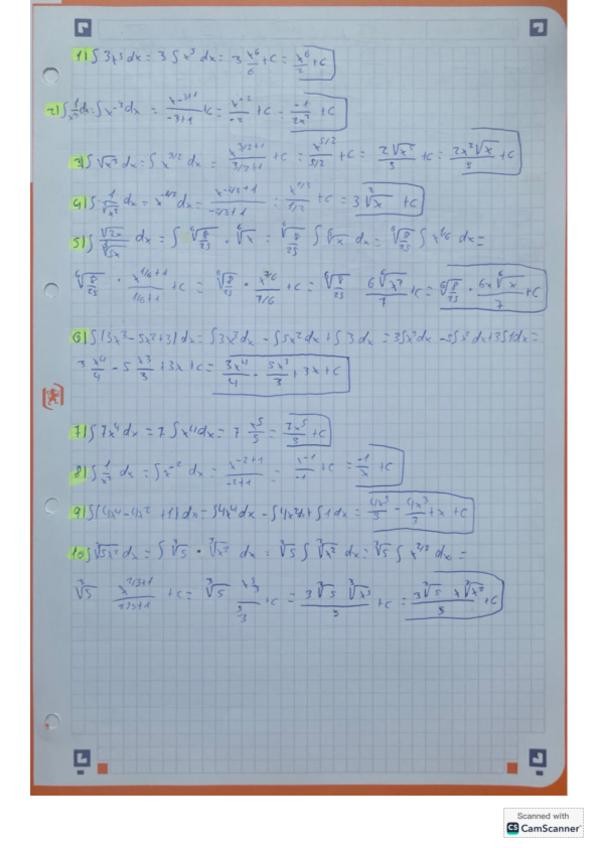 1) ∫ 3x⁵ dx = 3 ∫ x⁵ dx = 3 x⁶/6 + c = x⁶/2 + c
2) ∫ 1/x³ dx = ∫ x⁻³ dx = x⁻³⁺¹/-3+1 + c = x⁻²/-2 + c = -1/2x² + c
3) ∫ √x³ dx = ∫ x^3/2 dx = x^3/2+1/3/2+1 + c = x^5/2/5/2 + c = 2√x⁵/5 + c = 2x²√x/5 + c
4) ∫ 1/∛x² dx = x^-2/3 dx = x^-2/3+1/-2/3+1 = + c = 3∛x + c
5) ∫ √2x/∛5x dx = ∫ ⁶√8/25 · ⁶√x = ⁶√8/25 ∫ ⁶√x dx = ⁶√8/25 ∫ x^1/6 dx =
⁶√8/25 · x^1/6+1/1/6+1 + c = ⁶√8/25 · x^7/6/7/6 + c = ⁶√8/25 6⁶√x⁷/7 + c = ⁶√8/25 · 6x⁶√x/7 + c
6) ∫ (3x³ - 5x² + 3) dx = ∫ 3x³ dx - ∫ 5x² dx + ∫ 3 dx = 3∫x³ dx - 5∫x² dx + 3∫1dx =
3 x⁴/4 - 5 x³/3 + 3x + c = 3x⁴/4 - 5x³/3 + 3x + c
7) ∫ 7x⁴ dx = 7 ∫ x⁴ dx = 7 x⁵/5 = 7x⁵/5 + c
8) ∫ 1/x² dx = ∫ x⁻² dx = x⁻²⁺¹/-2+1 = x⁻¹/-1 + c = -1/x + c
9) ∫ (4x⁴ - 4x² + 1) dx = ∫ 4x⁴ dx - ∫ 4x² dx + ∫ 1 dx = 4x⁵/5 - 4x³/3 + x + c
10) ∫ ∛5x² dx = ∫ ∛5 · ∛x² dx = ∛5 ∫ ∛x² dx = ∛5 ∫ x^2/3 dx =
∛5 x^2/3+1/2/3+1 + c = ∛5 x^5/3/5/3 + c = 3∛5 ∛x⁵/5 + c = 3∛5 x∛x²/5 + c
Scanned with
CS CamScanner